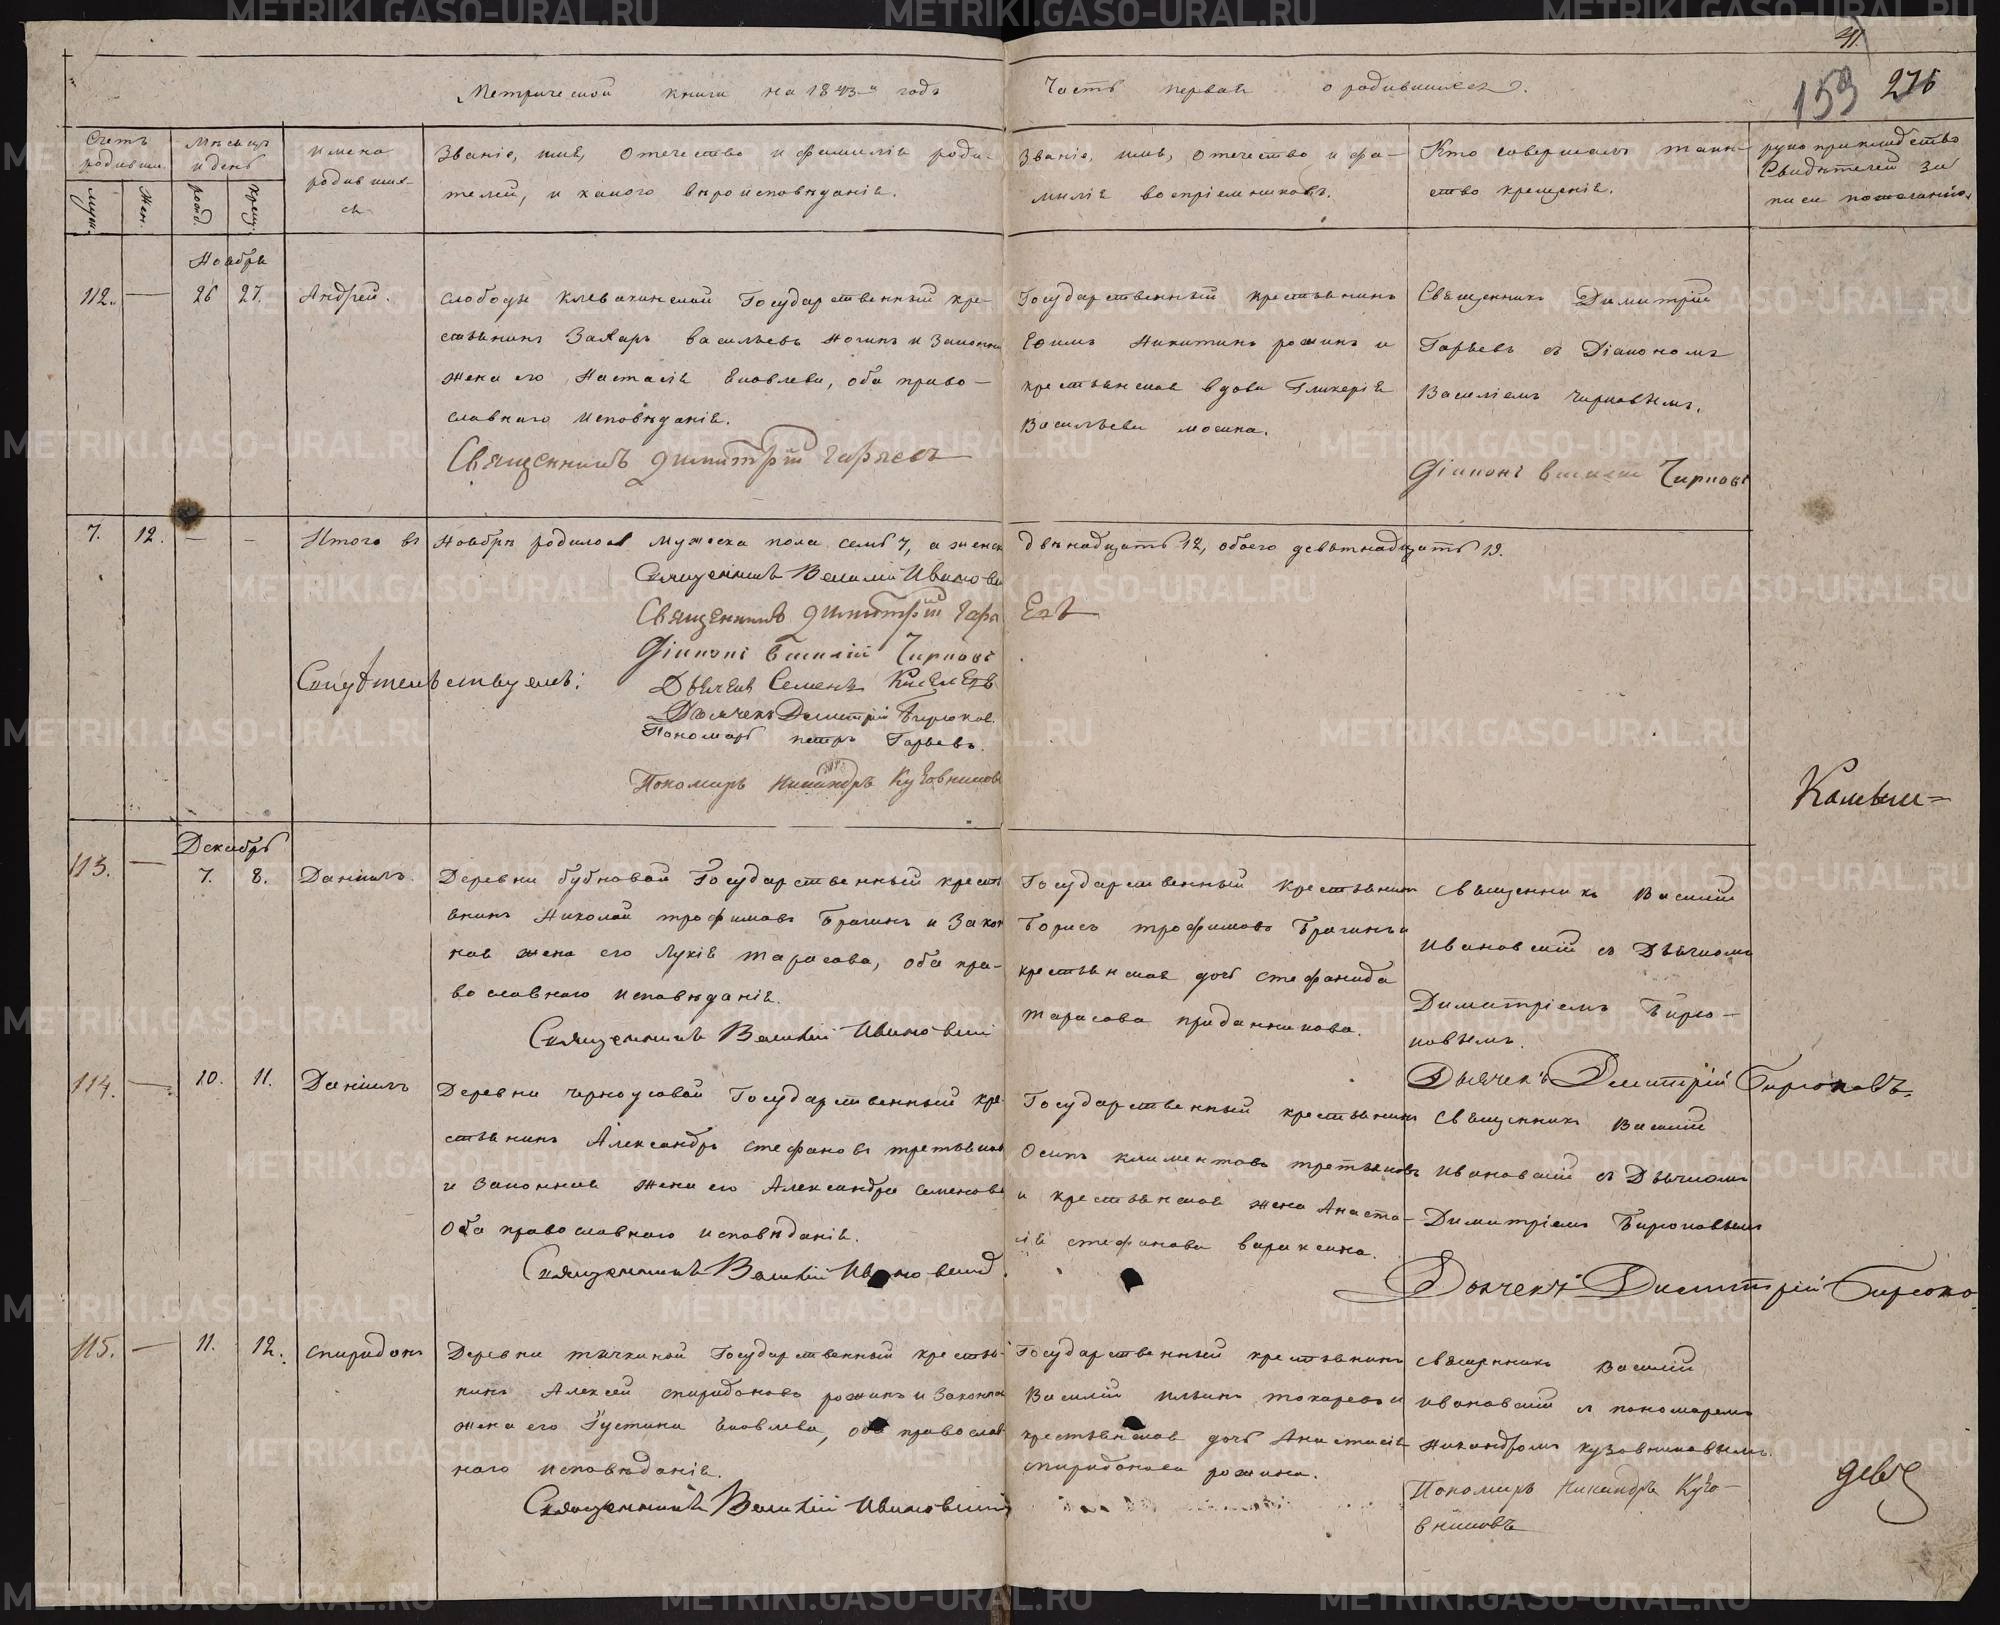 Метрической книги на 1843й годъ
Часть первая о родившихся.
153 276
Счетъ родивши.
Мѣсяцъ и день
Имена родивших-ся
Званіе, имя, отечество и фамилія роди-
телей, и какого вѣроисповѣданія.
Званіе, имя, отечество и фа-
милія воспріемниковъ.
Кто совершалъ таин-
ство крещенія.
рукоприкладство
Свидѣтелей за
писи по желанію.
муж. жен. рожд. крещ.
Ноября
112. — 26 27. Андрей.
Слободы Клевакинской Государственный кре-
стьянинъ Захаръ Васильевъ Ногинъ и Законная
жена его Настасія Яковлева, оба право-
славнаго исповѣданія.
Священникъ Димитрій Гаряевъ
Государственный крестьянинъ
Ефимъ Никитинъ рожинъ и
крестьянская вдова Гликерія
Васильева мосина.
Священникъ Димитрій
Гаряевъ съ Діакономъ
Василіемъ Чирковымъ.
Діаконъ Василій Чирковъ
7. 12. — — Итого въ Ноябрѣ родилося мужеска пола семь 7, а женска
двѣнадцать 12, обоего девятнадцать 19.
Священникъ Василій Ивановскій
Священникъ Димитрій Гаря
евъ
Діаконъ Василій Чирковъ
Свидѣтельствуемъ:
Дьячекъ Семенъ Киселевъ
Дьячекъ Димитрій Бирюков.
Пономарь петръ Гаряевъ.
Пономарь Никандръ Кузовниковъ
Камыш=
Декабрь
113. — 7. 8. Даніилъ.
Деревни бубновой Государственный кресть
янинъ Николай трофимовъ Брагинъ и Закон
ная жена его Лукія тарасова, оба пра-
вославнаго исповѣданія.
Священникъ Василій Ивановскій
Государственный крестьянинъ
Борисъ трофимовъ Брагинъ и
крестьянская дочь стефанида
тарасова приданникова.
Священникъ Василій
Ивановскій съ Дьячкомъ
Димитріемъ Бирю-
ковымъ.
Дьячекъ Димитрій Бирюковъ.
114. — 10. 11. Даніилъ
Деревни черноусовой Государственный кре
стьянинъ Александръ стефановъ третьяковъ
и Законная жена его Александра семенова
Оба православнаго исповѣданія.
Священникъ Василій Ивановскій
Государственный крестьянинъ
Осипъ климентовъ третьяковъ
и крестьянская жена Анаста-
сія стефанова вараксина.
Священникъ Василій
Ивановскій съ Дьячкомъ
Димитріемъ Бирюковымъ
Дьячекъ Димитрій Бирюко
115. — 11. 12. спиридонъ
Деревни тычкиной Государственный крестья-
нинъ Алексей спиридоновъ рожинъ и Законная
жена его Густина Яковлева, оба православ
наго исповѣданія.
Священникъ Василій Ивановскій
Государственный крестьянинъ
Василій ильинъ токаревъ и
крестьянская дочь Анастасія
спиридонова рожина.
Священникъ Василій
Ивановскій съ пономаремъ
Никандромъ кузовниковымъ.
Пономарь Никандръ Кузо-
вниковъ
METRIKI.GASO-URAL.RU